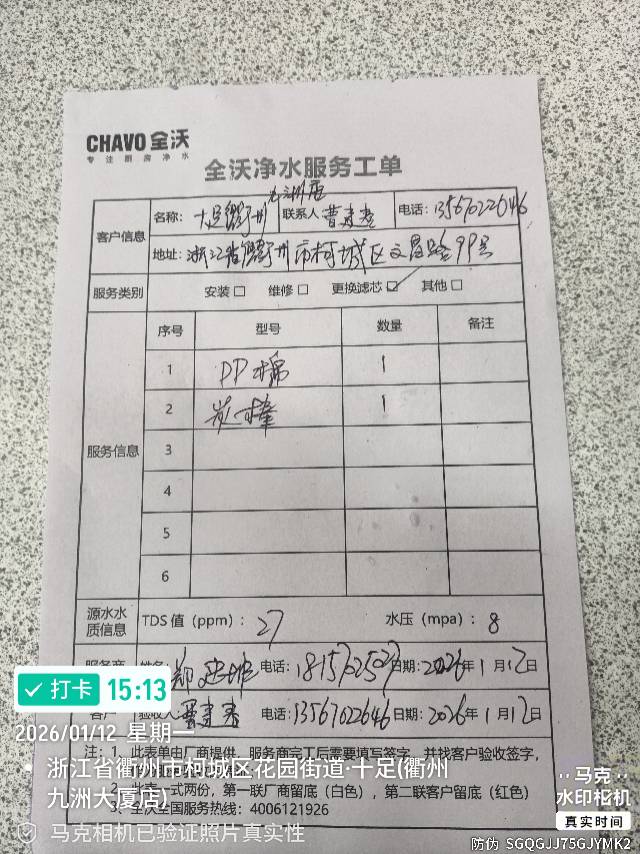 CHAVO 全沃
专注厨房净水
全沃净水服务工单
九洲店
客户信息 名称：十足衢州 联系人 曹建老 电话：13567022646
地址：浙江省衢州市柯城区文昌路99号
服务类别 安装□ 维修□ 更换滤芯☑ 其他□
服务信息 序号 型号 数量 备注
1 PP棉 1
2 炭棒 1
3
4
5
6
源水水质信息 TDS值（ppm）：27 水压（mpa）：8
服务商 姓名： 郑 电话：日期：2026年1月12日
客户 验收人 电话：13567022646 日期：2026年1月12日
注：1、此表单由厂商提供，服务商完工后需要填写签字，并找客户验收签字，
一式两份，第一联厂商留底（白色），第二联客户留底（红色）
3、全沃全国服务热线：4006121926
打卡 15:13
2026/01/12 星期一
浙江省衢州市柯城区花园街道·十足(衢州九洲大厦店)
马克相机已验证照片真实性
马克
水印相机
真实时间
防伪 SGQGJJ75GJYMK2